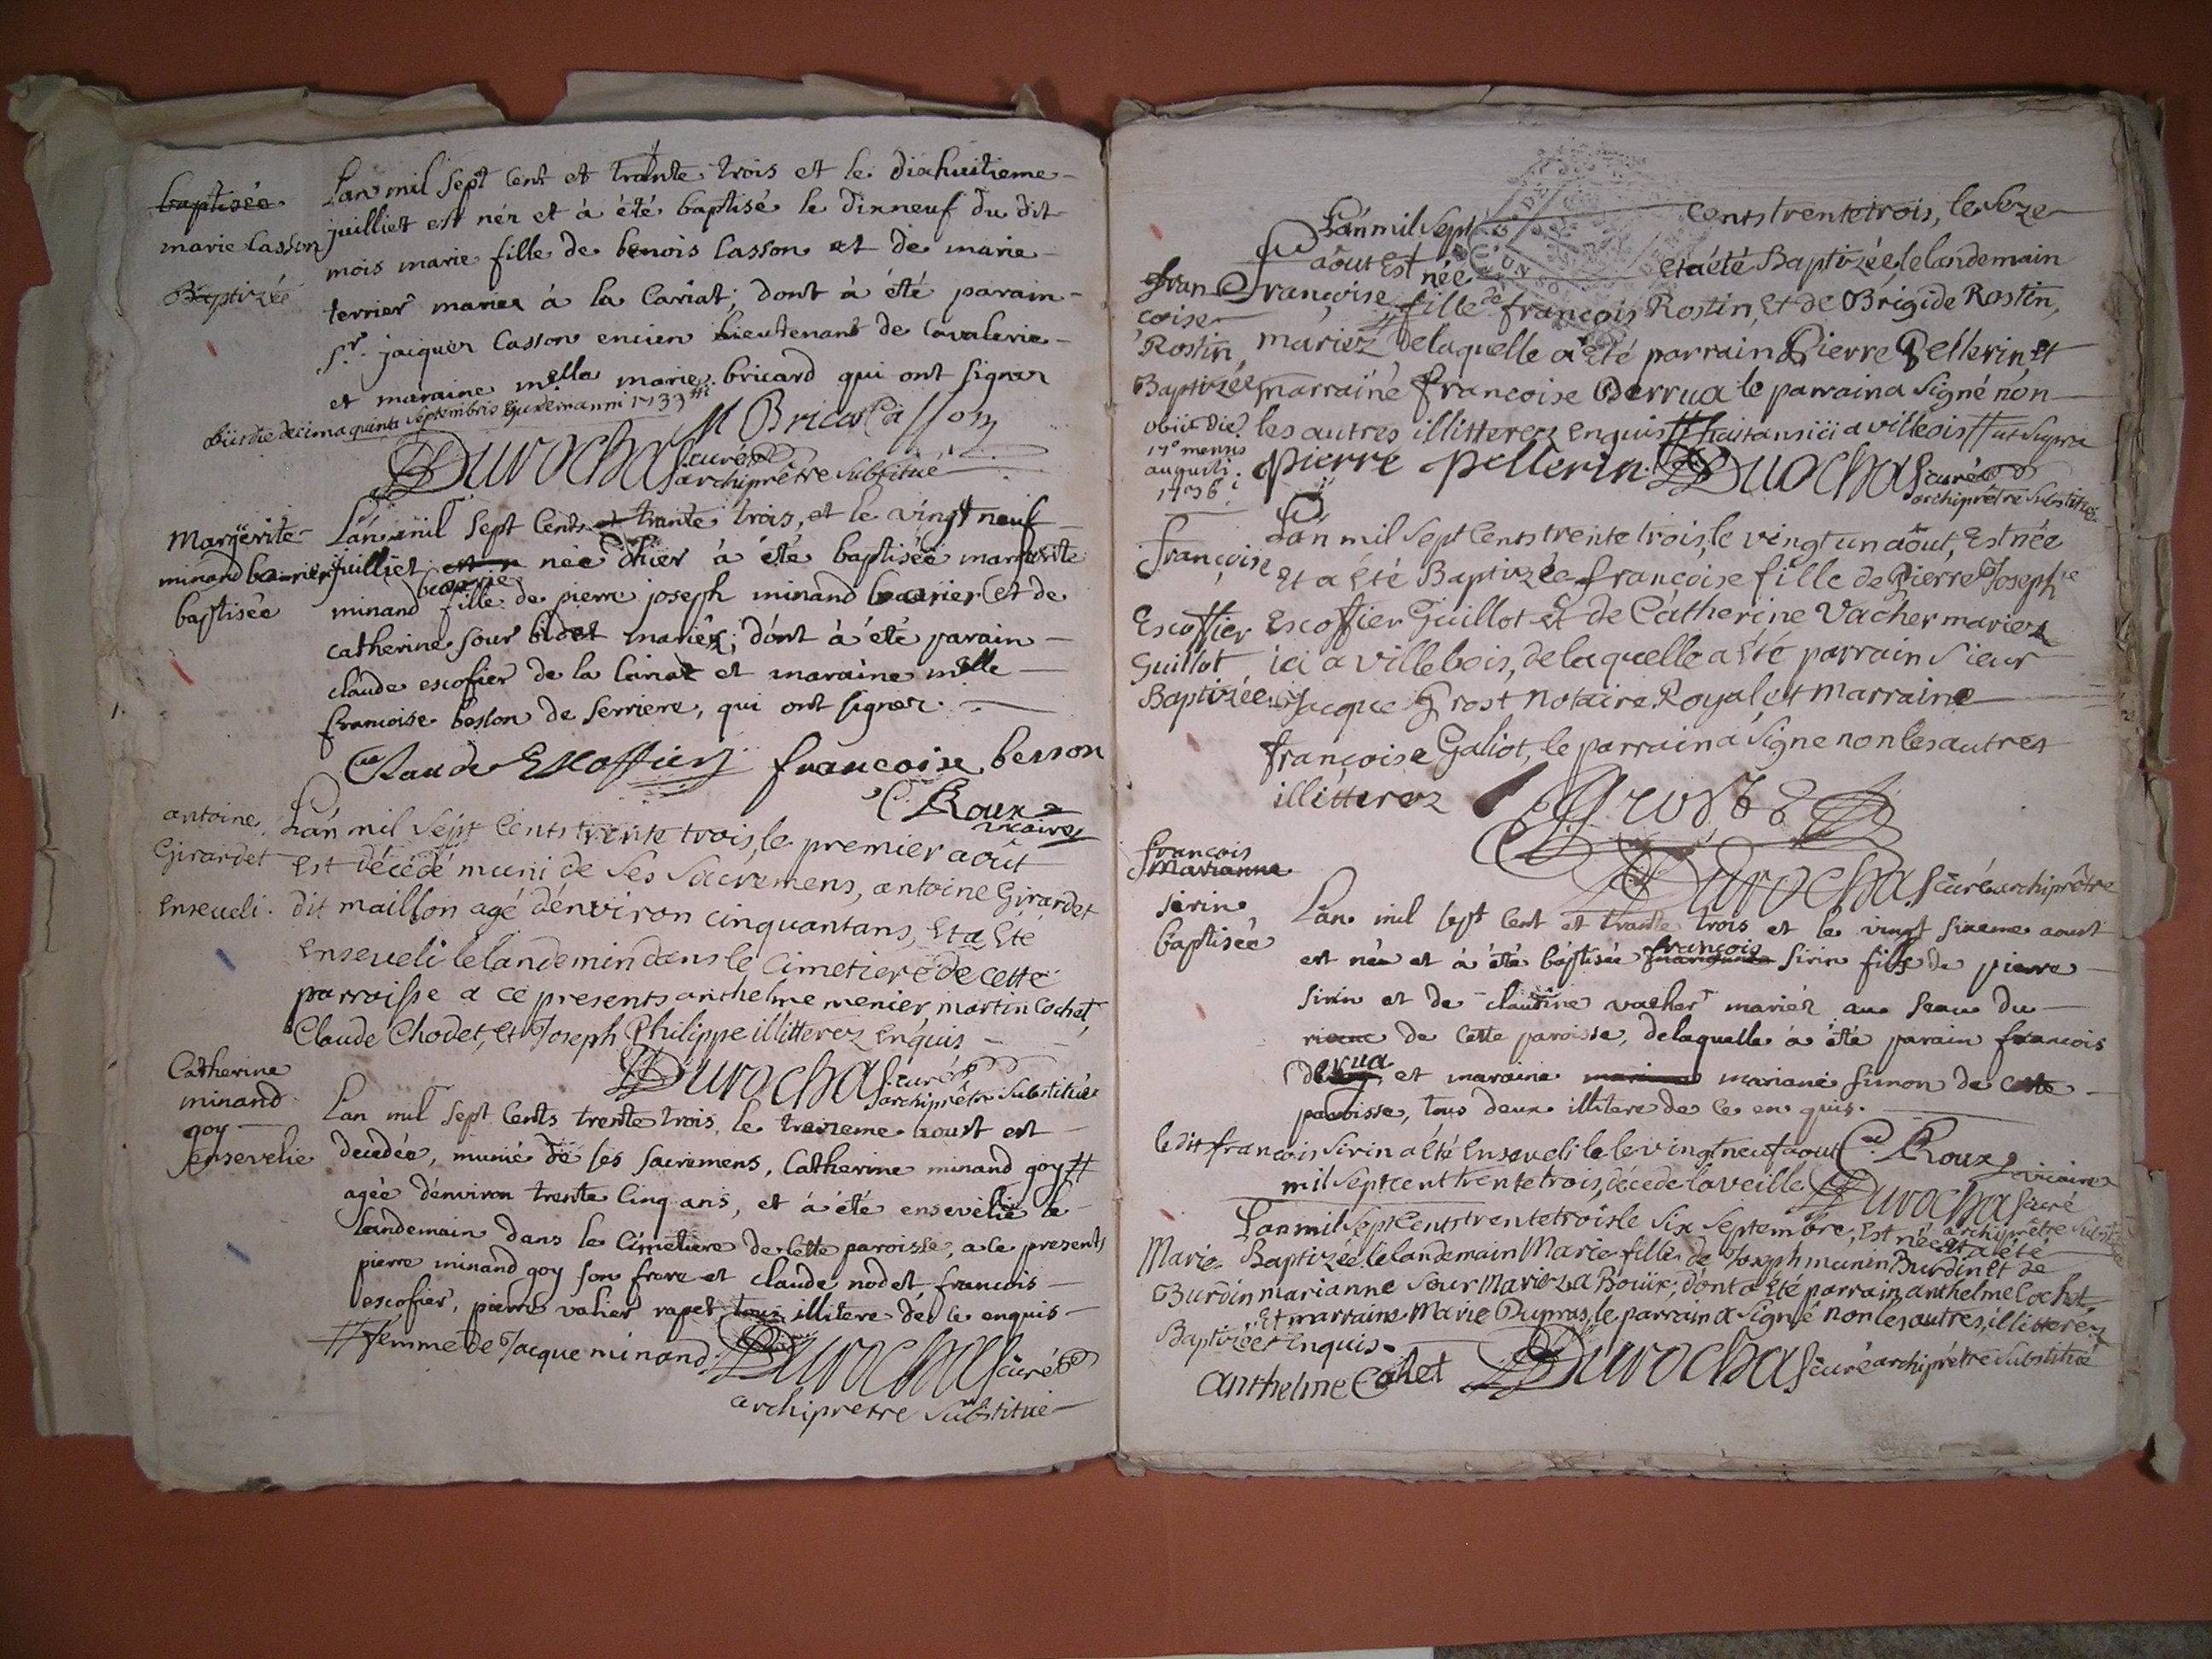 baptisée
marie Casson
Baptizée
Lan mil sept Cent et trante trois et le dixhuitieme
juilliet est néz et à été baptisé le dixneuf du dit
mois marie fille de benois Casson et de marie
terrier mariez à la Cariat; dont à été parain
Sr. jacquer Casson encien lieutenant de Cavalerie
et maraine melle marie bricard qui ont signer
obiit die decima quinta septembris ejusdem anni 1733
M Bricar Casson
Durochat curé
archiprêtre Substitué
Margërite
minand
baptisée
Lan mil sept Cents et trante trois, et le vingt neuf
juilliet née d'hier à été baptisée margerite
minand fille de pierre joseph minand et de
catherine sour bidet mariéz; dont à été parain
claude escofier de la Cariat et maraine melle
francoise besson de serriere, qui ont signer.
Claude Escoffier francoise besson
C. Roux
vicaire
antoine
Girardet
Enseveli.
Lán mil Sept Cents trente trois, le premier août
Est décédé muni de Ses Sacremens, antoine Girardet
dit maillon agé d'environ cinquantans, Et a Eté
Enseveli le landemin dans le Cimetiere de cette
parroisse a ce presents anthelme menier, martin Cochet,
Claude Chodet, et Joseph Philippe illitterez Enquis
Durochat curé
archiprêtre Substitué
Catherine
minand
goy
ensevelie
Lan mil sept Cents trente trois, le treizieme aoust est
decedée, munie de ses sacremens, Catherine minand goy #
agée d'environ trente Cinq ans, et à été ensevelie le
landemain dans le Cimetiere de Cette paroisse, a ce presents
pierre minand goy son frere et claude nodet, francois
escofier, pierre vahier rapet tous illitere de ce enquis
# femme de Jacque minand. Durochat curé
archipretre Substitué
Lán mil Sept Cents trente trois, le Seze
août Est née Et a été Baptizée le landemain
Françoise fille de françois Rostin, Et de Brigide Rostin,
mariéz delaquelle a été parrain Pierre Pellerin, et
marraine francoise Derrua le parrain a Signé non
les autres illitterez enquis # ut Supra
Fran
coise
Rostin
Baptizée
obiit die
17° mensis
augusti
1736
pierre pellerin. Durochat curé
archiprêtre Substitué
Françoise
Escoffier
Guillot
Baptizée
Lán mil Sept Cents trente trois, le vingt un août, Est née
Et a Eté Baptizée françoise fille de Pierre Joseph
Escoffier Guillot et de Catherine Vacher mariez
ici a villebois, de laquelle a Eté parrain Sieur
Jacque Grost notaire Royal, et Marraine
françoise Galiot, le parrain a Signe non les autres
illitterez Grost
Durochat curé archiprêtre
francois
Marianne
sirin
baptisée
Lan mil sept Cent et trante trois et le vingt sixeme aoust
est née et à été baptisée francois Sirin fils de pierre
Sirin et de claudine vacher mariéz au seau du
de Cette paroisse, delaquelle à été parain francois
derua, et maraine mariane simon de Cette
paroisse, tous deux illitere de Ce en quis.
C. Roux vicaire
le dit françois Sirin a été Enseveli le vingt neuf août
mil Sept cent trente trois, décedé la veille Durochat curé
archiprêtre Substitué
Marie
Burdin
Baptizée
Lan mil Sept Cents trente trois le Six Septembre, Est née Et a été
Baptizée le landemain Marie fille de Joseph munin Burdin et de
marianne Sour Mariez a Bouix; dont a Eté parrain anthelme Cochet,
Et marraine Marie Dupras, le parrain a Signé non les autres, illitterez
Enquis.
anthelme Cochet Durochat curé archiprêtre Substitué